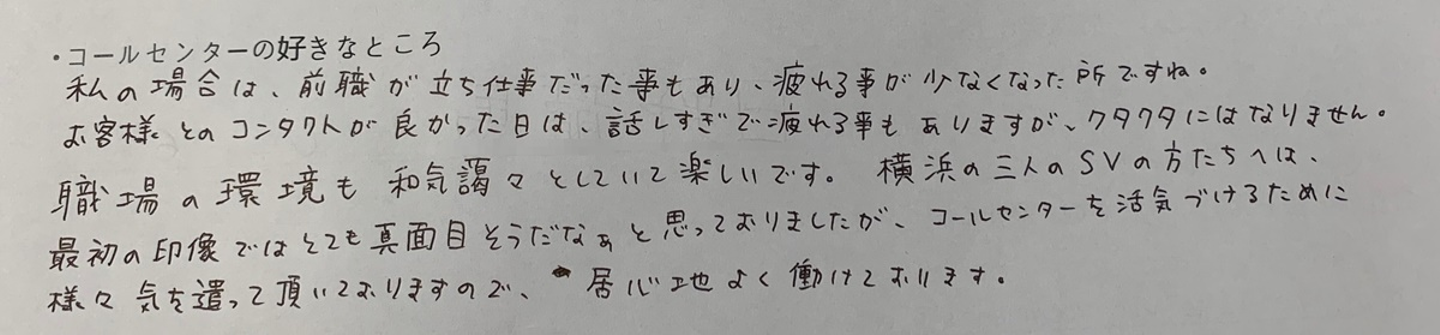 ・コールセンターの好きなところ
私の場合は、前職が立ち仕事だった事もあり、疲れる事が少なくなった所ですね。
お客様とのコンタクトが良かった日は、話しすぎで疲れる事もありますが、クタクタにはなりません。
職場の環境も和気藹々としていて楽しいです。横浜の三人のSVの方たちへは、
最初の印像ではとても真面目そうだなぁと思っておりましたが、コールセンターを活気づけるために
様々気を遣って頂いておりますので、居心地よく働けております。